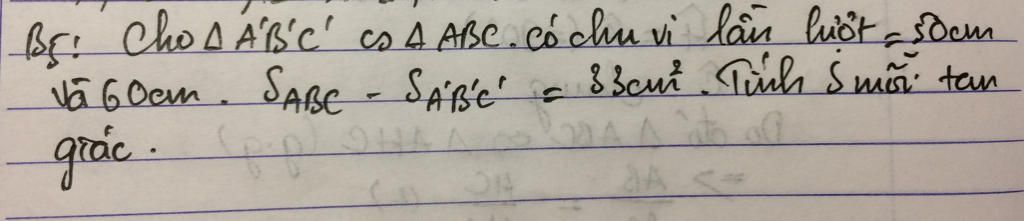 B5: Cho Δ A'B'C' ∽ Δ ABC. có chu vi lần lượt = 50cm
và 60cm. SABC - SA'B'C' = 33cm². Tính S mỗi tam
giác.